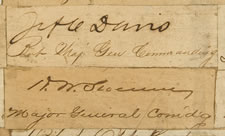 Jef C Davis
Bvt Maj Gen Commanding
H. W. Slocum
Major General Comdg